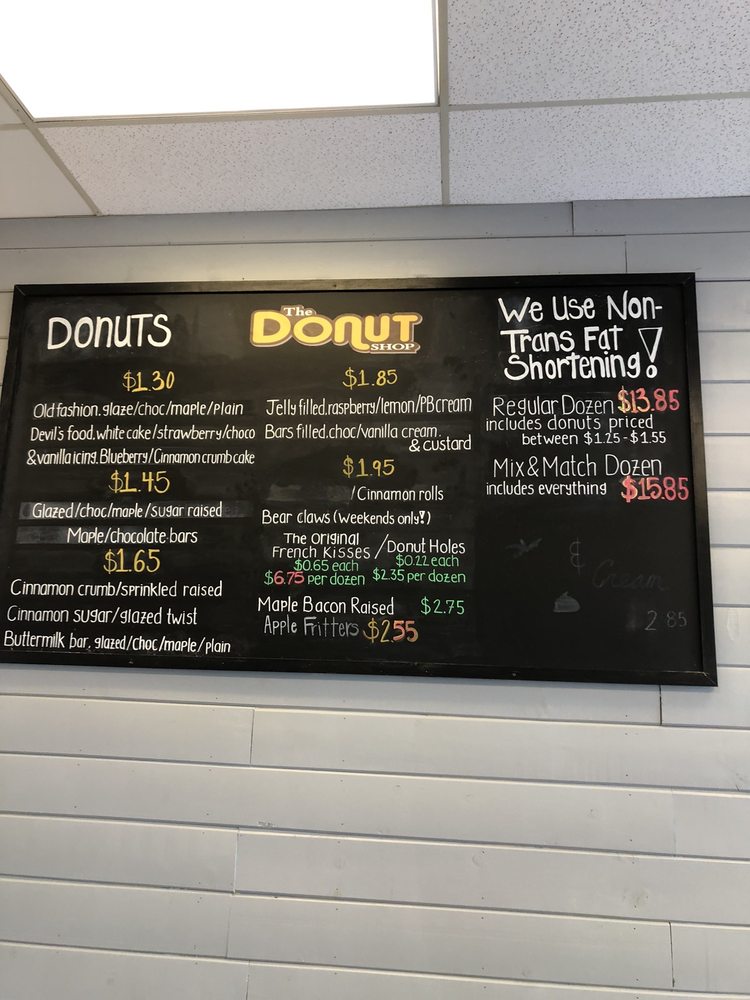 DONUTS
$1.30
Old fashion.glaze/choc/maple/plain
Devil's food.white cake/strawberry/choco
&vanilla icing. Blueberry/Cinnamon crumb cake
$1.45
Glazed/choc/maple/sugar raised
Maple/chocolate bars
$1.65
Cinnamon crumb/sprinkled raised
Cinnamon sugar/glazed twist
Buttermilk bar. glazed/choc/maple/plain
The
DONUT
SHOP
$1.85
Jelly filled.raspberry/lemon/PB cream
Bars filled.choc/vanilla cream.
& custard
$1.95
/Cinnamon rolls
Bear claws (weekends only!)
The original
French Kisses /Donut Holes
$0.65 each $0.22 each
$6.75 per dozen $2.35 per dozen
Maple Bacon Raised $2.75
Apple Fritters $2.55
We Use Non-
Trans Fat
Shortening!
Regular Dozen $13.85
includes donuts priced
between $1.25-$1.55
Mix & Match Dozen
includes everything $15.85
&
Cream
2.85